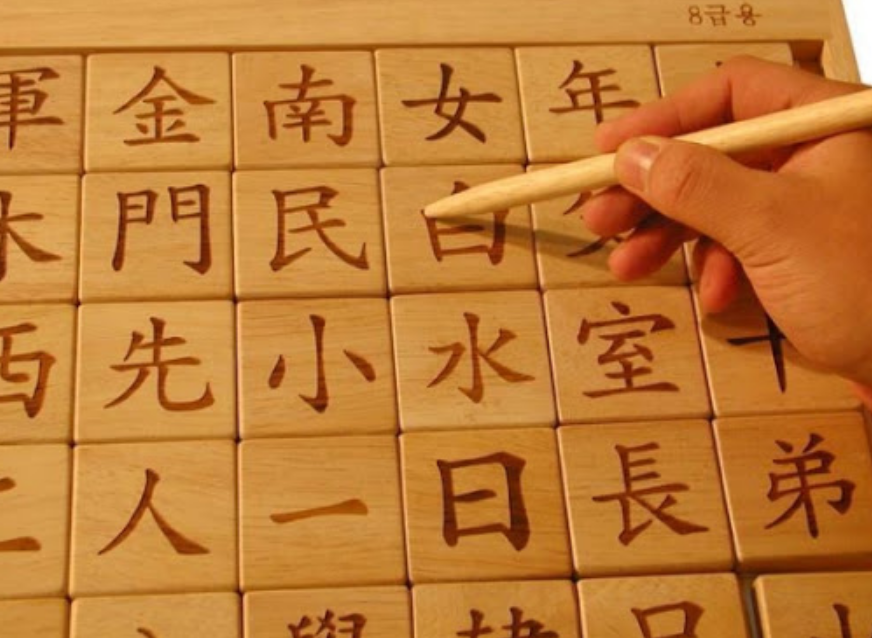 8급용
軍 金 南 女 年
木 門 民 白
西 先 小 水 室 十
二 人 一 日 長 弟